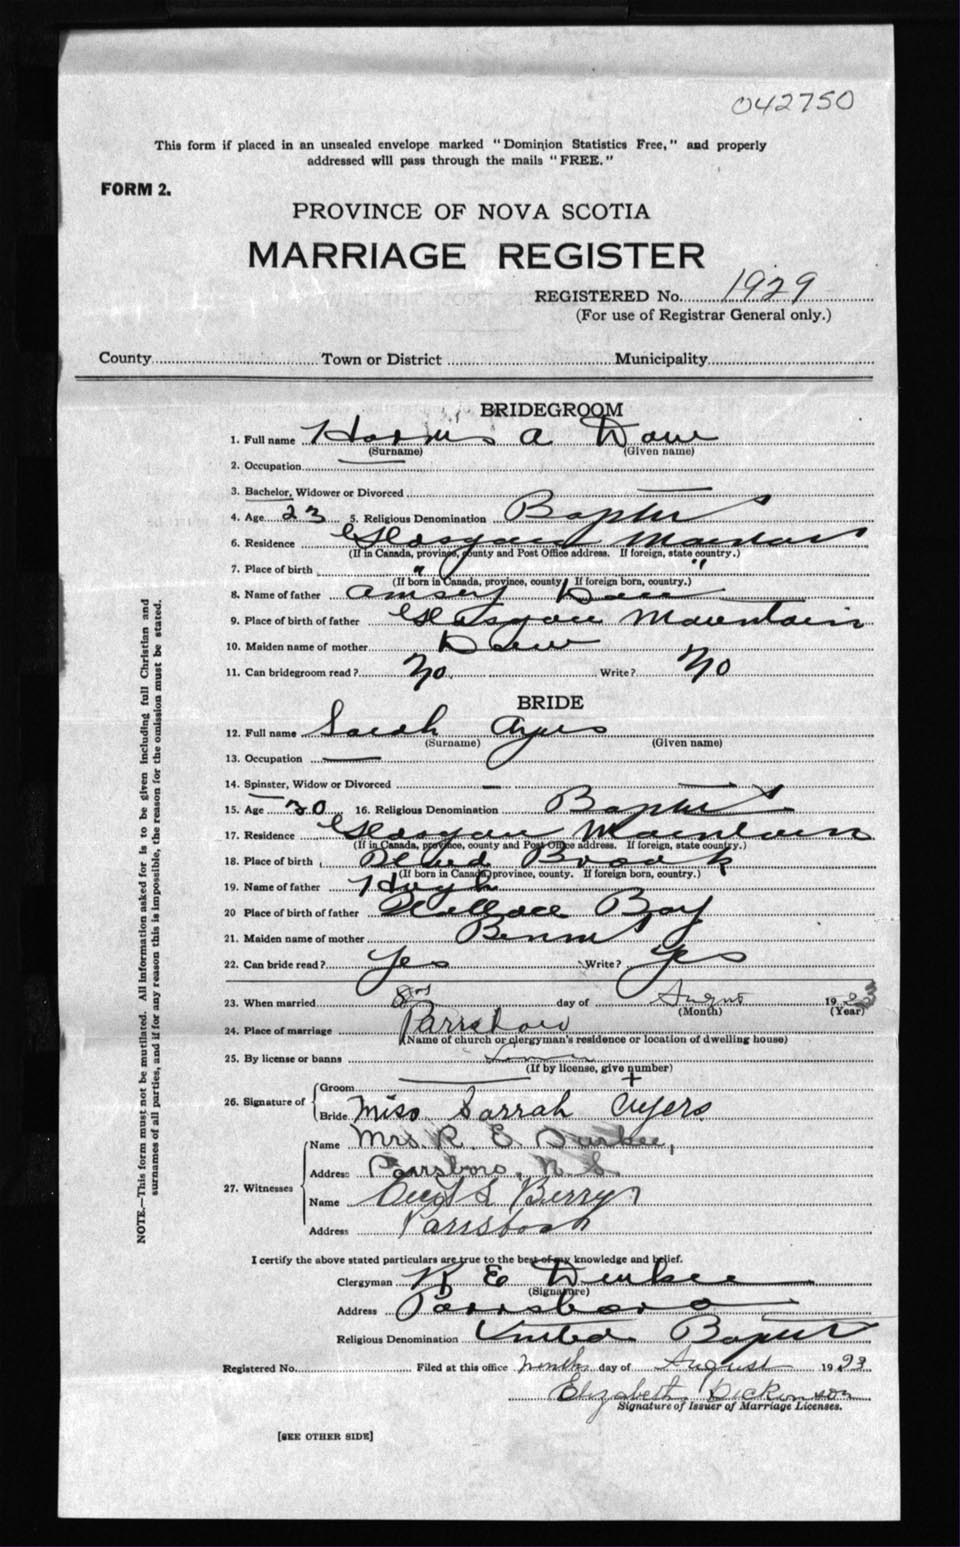 042750
This form if placed in an unsealed envelope marked "Dominion Statistics Free," and properly
addressed will pass through the mails "FREE."
FORM 2.
PROVINCE OF NOVA SCOTIA
MARRIAGE REGISTER
REGISTERED No. 1929
(For use of Registrar General only.)
County Town or District Municipality
BRIDEGROOM
1. Full name Harris A
(Surname) (Given name)
2. Occupation
3. Bachelor, Widower or Divorced
4. Age 23 5. Religious Denomination Baptist
6. Residence Glasgow Mountain
(If in Canada, province, county and Post Office address. If foreign, state country.)
7. Place of birth " "
(If born in Canada, province, county. If foreign born, country.)
8. Name of father Amsey
9. Place of birth of father Glasgow Mountain
10. Maiden name of mother
11. Can bridegroom read? No Write? No
BRIDE
12. Full name Sarah Ayers
(Surname) (Given name)
13. Occupation
14. Spinster, Widow or Divorced
15. Age 30 16. Religious Denomination Baptist
17. Residence Glasgow Mountain
(If in Canada, province, county and Post Office address. If foreign, state country.)
18. Place of birth Brook
(If born in Canada, province, county. If foreign born, country.)
19. Name of father Hugh
20 Place of birth of father Wallace Bay
21. Maiden name of mother
22. Can bride read? Yes Write? Yes
23. When married day of August 1923
(Month) (Year)
24. Place of marriage Parrsboro
(Name of church or clergyman's residence or location of dwelling house)
25. By license or banns
(If by license, give number)
26. Signature of Groom +
Bride Miss Sarrah Ayers
27. Witnesses Name Mrs R. E. Durkee
Address Parrsboro, N. S.
Name Berry
Address Parrsboro
I certify the above stated particulars are true to the best of my knowledge and belief.
Clergyman R E Durkee
(Signature)
Address Parrsboro
Religious Denomination United Baptist
Registered No. Filed at this office ninth day of August 1923
Elizabeth Dickinson
Signature of Issuer of Marriage Licenses.
[SEE OTHER SIDE]
NOTE.—This form must not be mutilated. All information asked for is to be given including full Christian and
surnames of all parties, and if for any reason this is impossible, the reason for the omission must be stated.